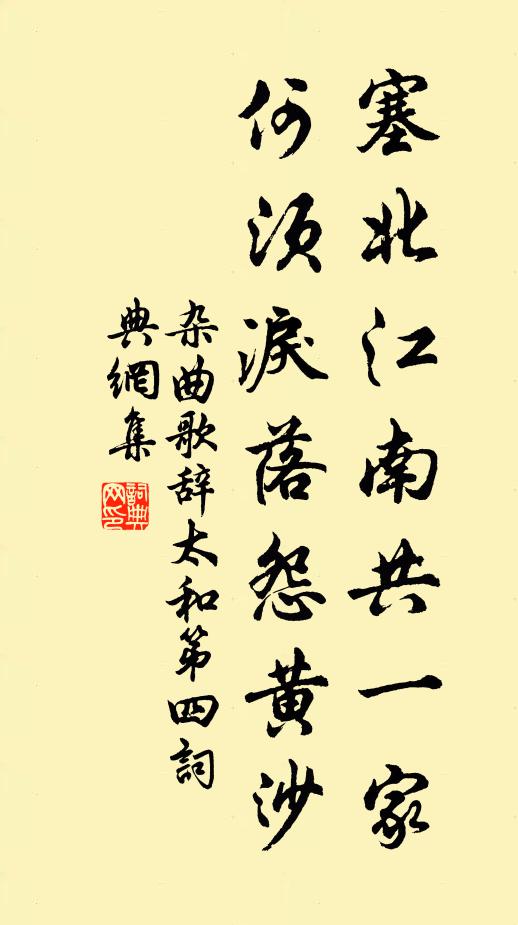 塞北江南共一家
何須淚落怨黃沙
杂曲歌辞太和第四詞
典網集
詞典网印